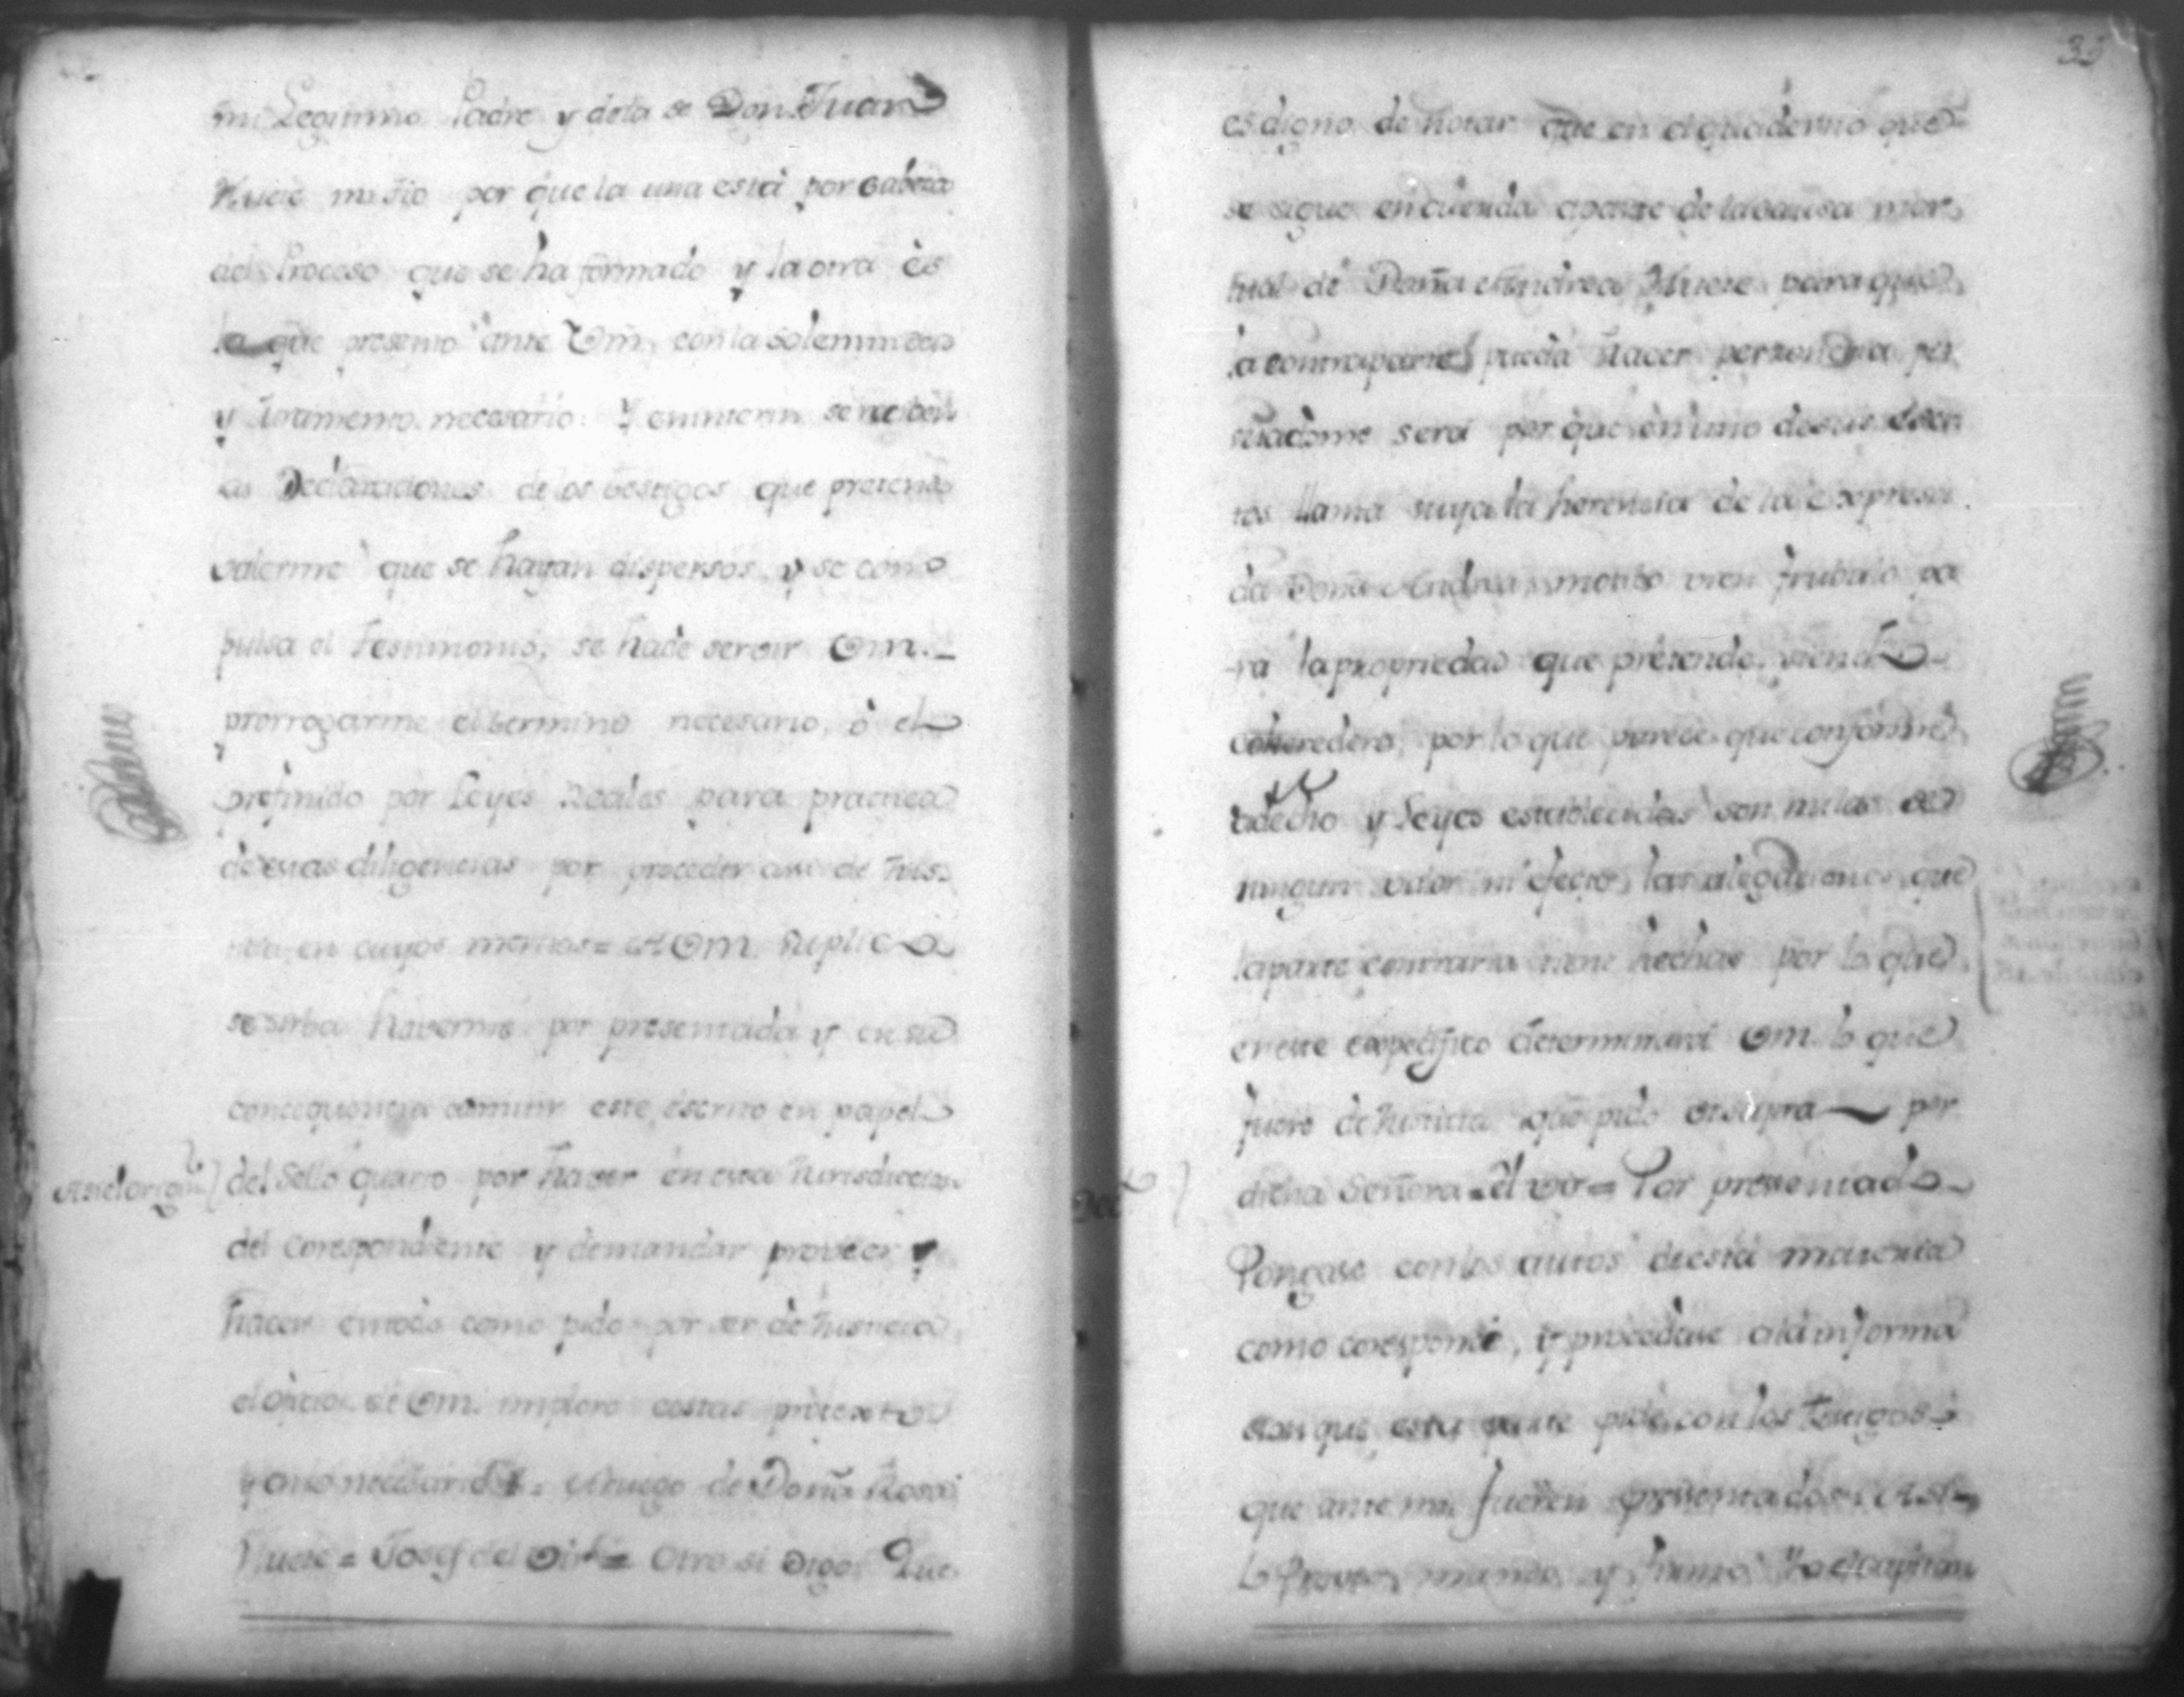 mi Legitimo Padre y dela de Don Juan
Huete mi tio por que la una está por cabeza
del Proceso que se ha formado y la otra es
la que presento ante Vm. con la solemnidad
y Juramento necesario: Y en interin se reciben
as Declaraciones de los testigos que pretendo
valerme que se hayan dispersos y se com
pulsa el Testimonio, se hade servir Vm.
prorrogarme el termino necesario, ò el
prefinido por Leyes Reales para practica
de estas diligencias por proceder asi de Jus
en cuyos meritos = A Vm. Suplico
se sirba haverme por presentada y en su
consequencia admitir este escrito en papel
del Sello quarto por haver en esta Jurisdiccion
del Correspondiente y demandar proveer y
hacer en todo como pido por ser de Justicia
el oficio de Vm. imploro costas protexto
y en lo necesario = A ruego de Doña Rosa
Huete = Josef del = Otro si Digo: Que
32
es digno de notar que en el quaderno que
se sigue en cuerda aparte de la causa mor
tual de Doña Andrea Huete para que
la contraparte pueda hacer personeria per
suadome será por que en uno de sus escri
tos llama suya la herencia de la expresa
da Doña Andrea, motibo vien frubolo pa
ra la propriedad que pretende, siendo
coheredero, por lo que parece que conforme
à dro y Leyes establecidas son nulas de
ningun valor ni efecto, las alegaciones que
la parte contraria tiene hechas por lo que
en este expecifico determinará Vm. lo que
fuere de Justicia que pido ut supra — por
dicha Señora = = Por presentado
Pongase con los autos de esta materia
como corresponde, y procedase a la informa
cion que esta parte pide con los testigos
que ante mi fueren presentados: Asi
lo Proveo, mando, y firmo Yo el Capitan